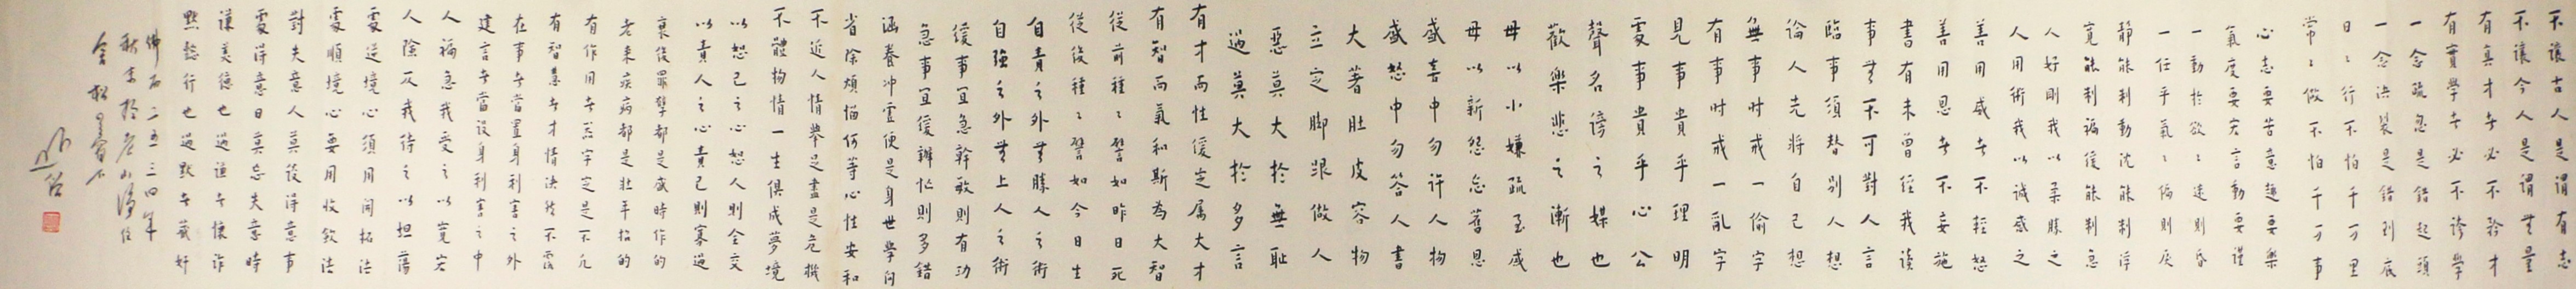 不讓古人是謂有志
不讓今人是謂無量
有真才者必不矜才
有實學者必不誇學
一念疏忽是錯起頭
一念決裂是錯到底
日日行不怕千万里
常常做不怕千万事
心志要苦意趣要樂
氣度要宏言動要謹
一動於欲欲迷則昏
一任乎氣氣偏則戾
靜能制動沈能制浮
寬能制褊緩能制急
人好剛我以柔勝之
人用術我以誠感之
善用威者不輕怒
善用恩者不妄施
書有未曾經我讀
事無不可對人言
臨事須替別人想
論人先將自己想
無事时戒一偷字
有事时戒一亂字
見事貴乎理明
處事貴乎心公
聲名謗之媒也
歡樂悲之漸也
毋以小嫌疏至戚
毋以新怨忘舊恩
盛喜中勿許人物
盛怒中勿答人書
大著肚皮容物
立定脚跟做人
惡莫大於無恥
過莫大於多言
有才而性緩定屬大才
有智而氣和斯為大智
從前種種譬如昨日死
從後種種譬如今日生
自責之外無勝人之術
自強之外無上人之術
緩事宜急幹敏則有功
急事宜緩辦忙則多錯
涵養沖虛便是身世學问
省除煩惱何等心性安和
不近人情舉足盡是危機
不體物情一生俱成夢境
以恕己之心恕人則全交
以責人之心責己則寡過
衰後罪孽都是盛時作的
老來疾病都是壯年招的
有作用者器宇定是不凡
有智慧者才情決然不露
在事者當置身利害之外
建言者當設身利害之中
人褊急我受之以寬宏
人險仄我待之以坦蕩
處逆境心須用開拓法
處順境心要用收斂法
對失意人莫談得意事
處得意日莫忘失意時
謙美德也過謙者懷詐
默懿行也過默者藏奸
佛两二五三四年